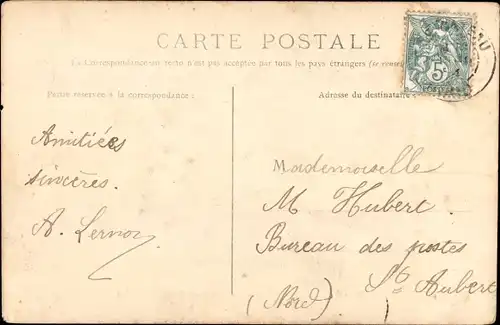 CARTE POSTALE
La Correspondance au recto n'est pas acceptée par tous les pays étrangers
Partie réservée à la correspondance :
Adresse du destinataire
5c
Amitiées
sincères.
A. Lernoz
Mademoiselle
M Hubert.
Bureau des postes
St Aubert
(Nord)